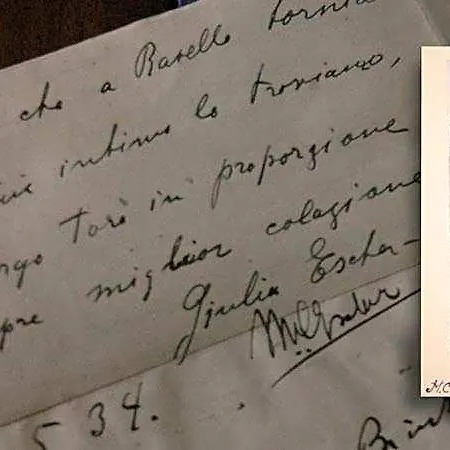 che a Ravello tornia
intimo lo troviamo,
rgo Toro in proporzione
pre miglior colazione
Giulia Escher-
MCEscher
5 34.
M.C